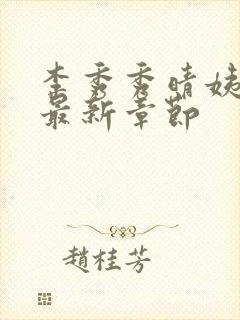 秀秀晴姨
最新章節
趙桂芳